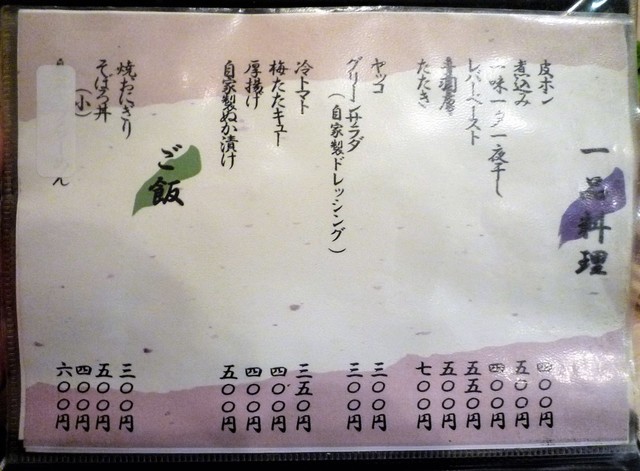 一品料理
皮ポン 四〇〇円
煮込み 五〇〇円
一夜干し 四〇〇円
レバーペースト 五五〇円
五〇〇円
たたき 七〇〇円
ヤッコ 三〇〇円
グリーンサラダ 三〇〇円
(自家製ドレッシング)
冷トマト 三五〇円
梅たたキュー 四〇〇円
厚揚げ 四〇〇円
自家製ぬか漬け 五〇〇円
ご飯
焼おにぎり 三〇〇円
そぼろ丼 五〇〇円
(小) 四〇〇円
六〇〇円